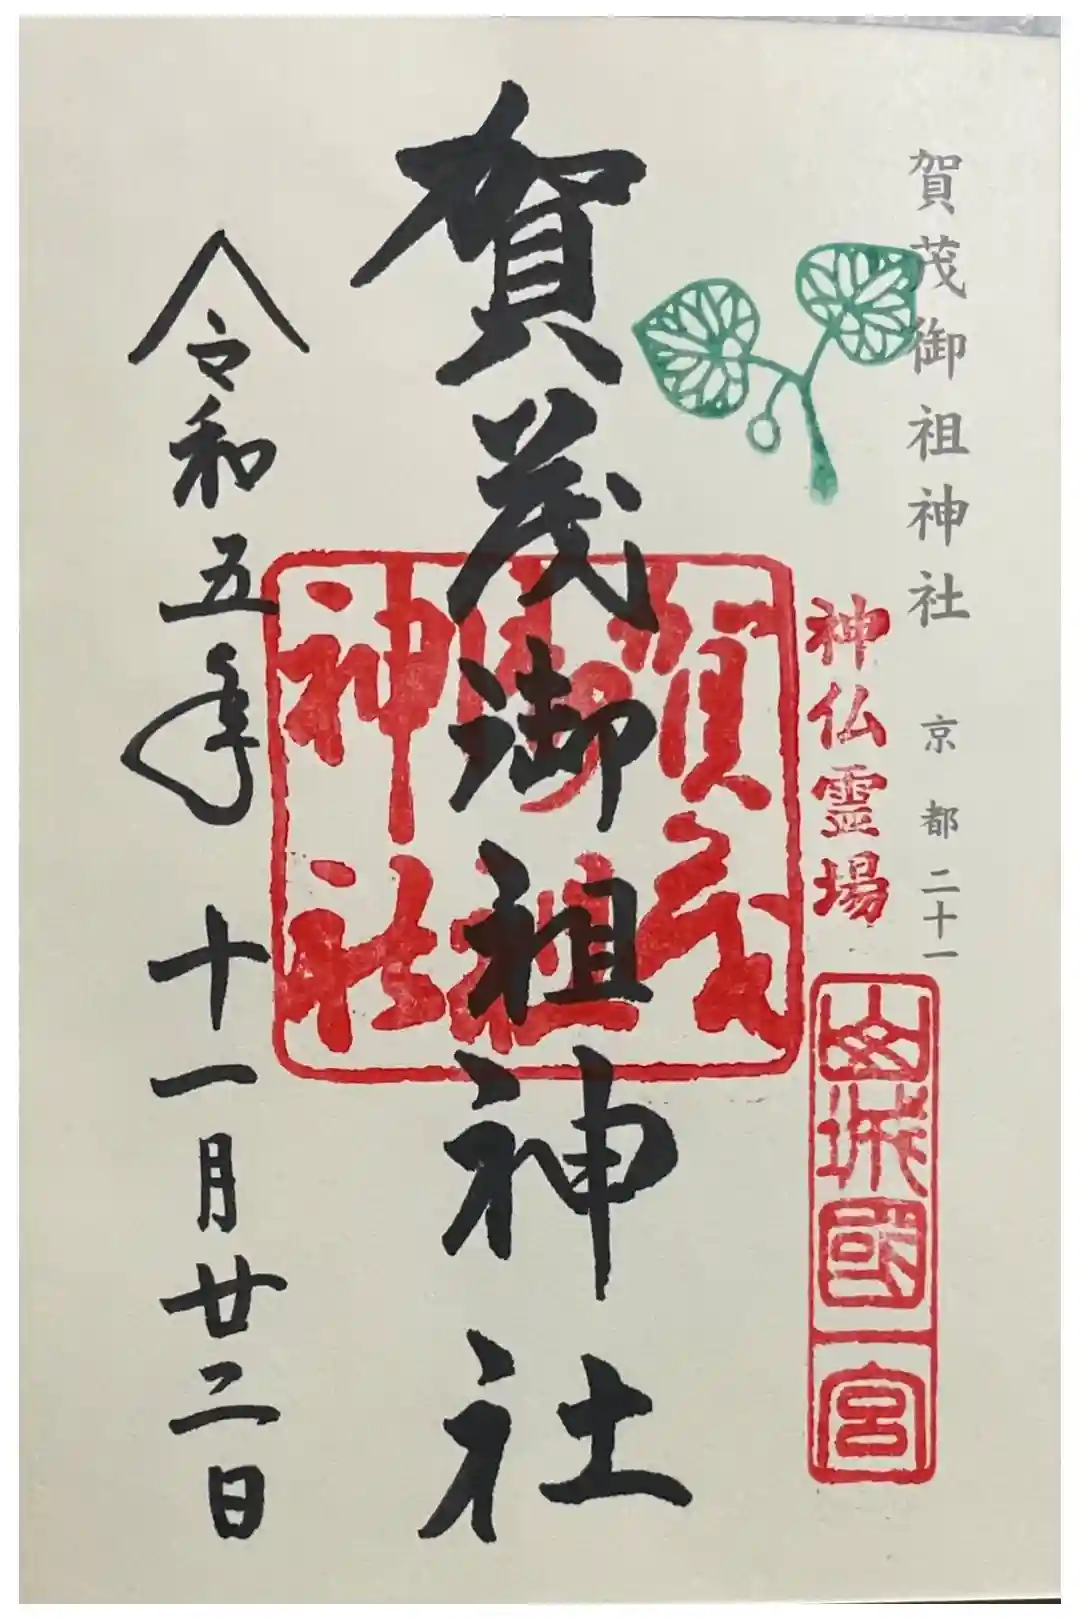 賀茂御祖神社 京都二十一
神仏霊場
山城國一宮
賀茂御祖神社
賀茂
御祖
神社
令和五年 十一月廿二日